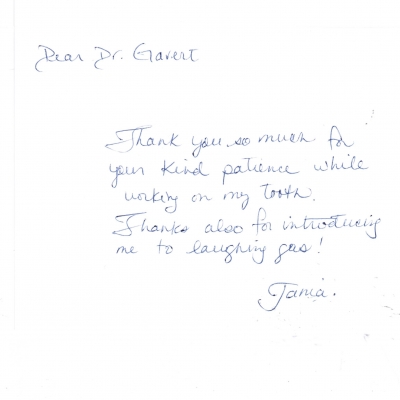 Dear Dr. Gavert
Thank you so much for
your kind patience while
working on my tooth.
Thanks also for introducing
me to laughing gas!
Tania.